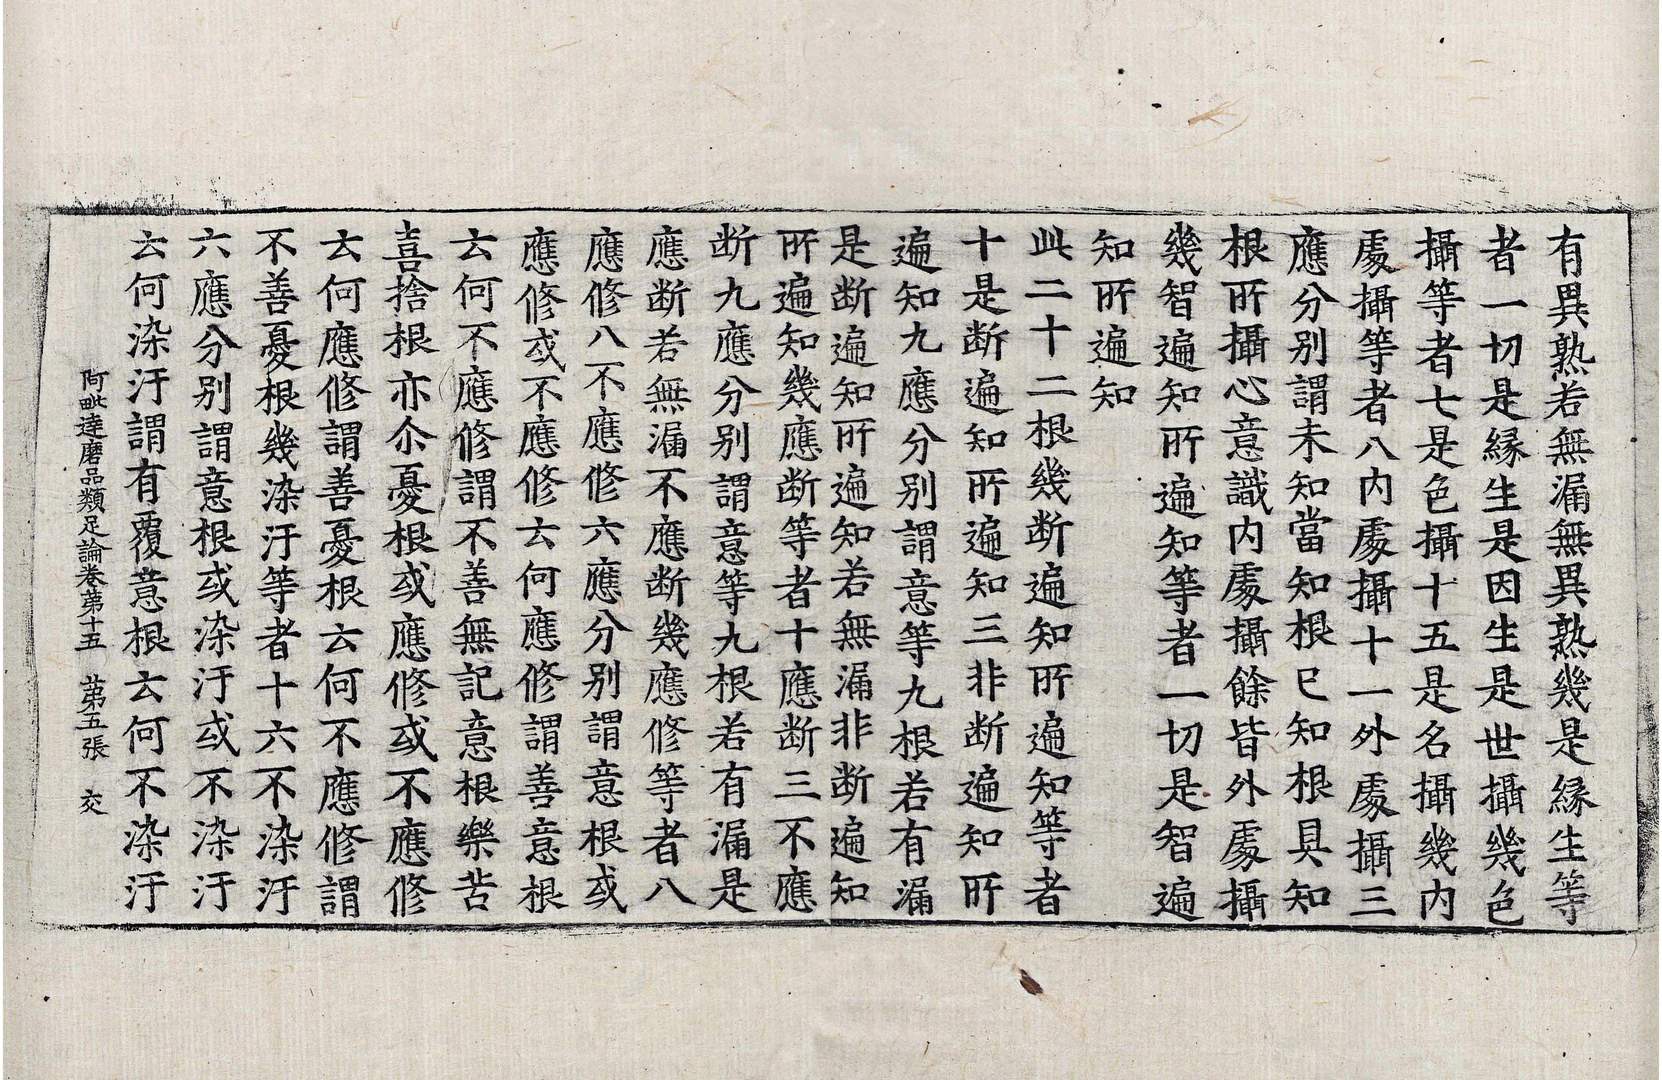 有異熟若無漏無異熟幾是縁生等
者一切是縁生是因生是世攝幾色
攝等者七是色攝十五是名攝幾内
處攝等者八内處攝十一外處攝三
應分別謂未知當知根已知根具知
根所攝心意識内處攝餘皆外處攝
幾智遍知所遍知等者一切是智遍
知所遍知
此二十二根幾断遍知所遍知等者
十是断遍知所遍知三非断遍知所
遍知九應分別謂意等九根若有漏
是断遍知所遍知若無漏非断遍知
所遍知幾應断等者十應断三不應
断九應分別謂意等九根若有漏是
應断若無漏不應断幾應修等者八
應修八不應修六應分別謂意根或
應修或不應修云何應修謂善意根
云何不應修謂不善無記意根樂苦
喜捨根亦尒憂根或應修或不應修
云何應修謂善憂根云何不應修謂
不善憂根幾染汙等者十六不染汙
六應分別謂意根或染汙或不染汙
云何染汙謂有覆意根云何不染汙
阿毗達磨品類足論卷第十五 第五張 交